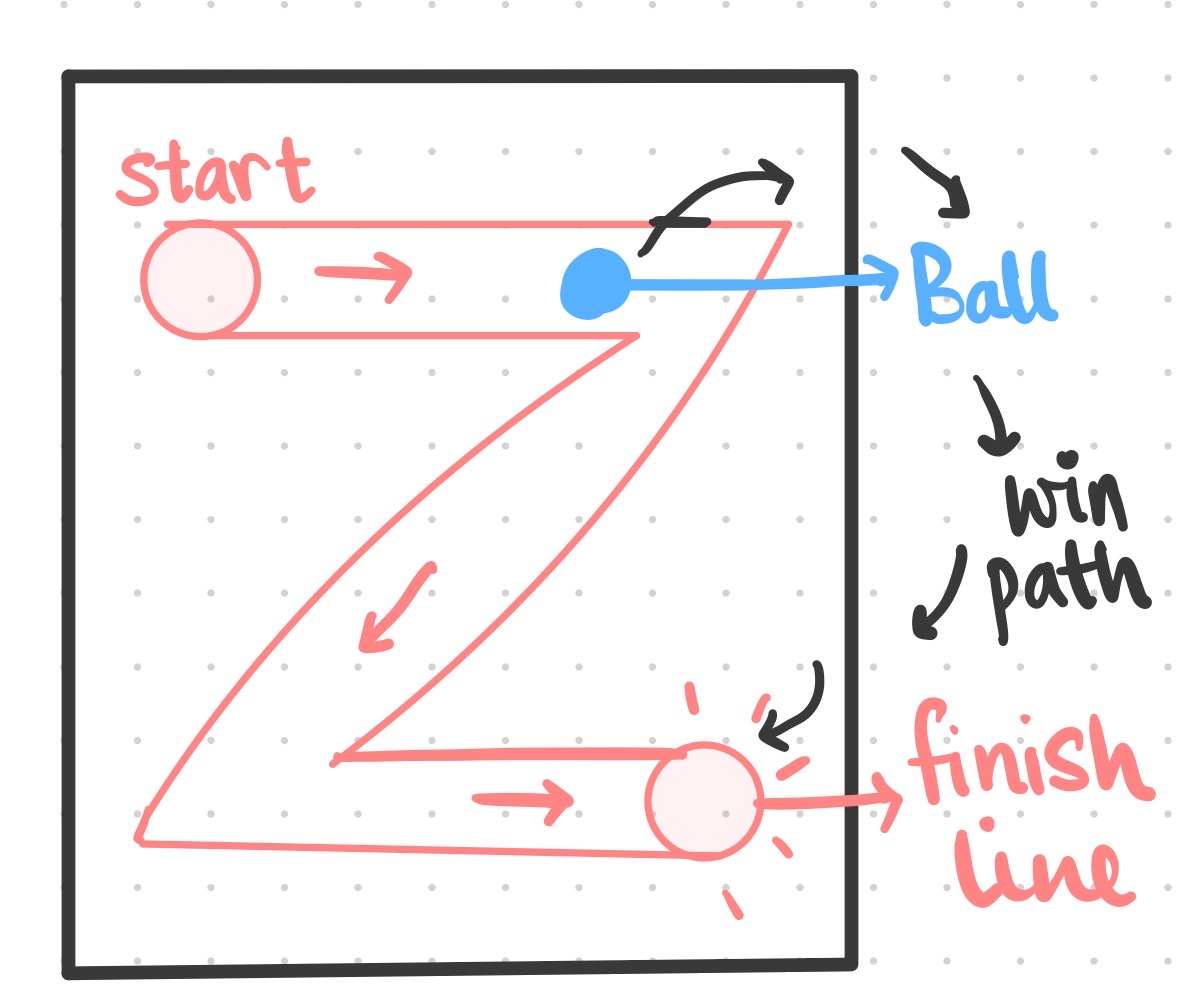 start
Ball
win
path
finish
line